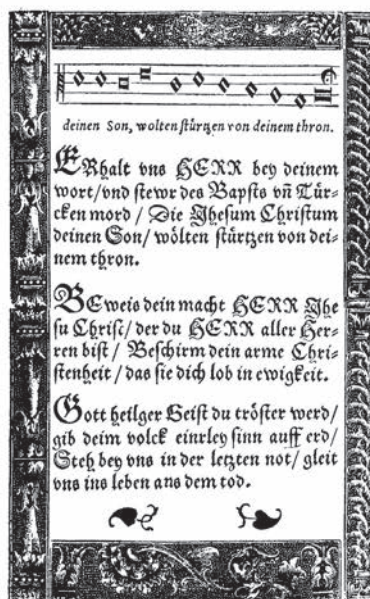 deinen Son, wolten stürtzen von deinem thron.
ERhalt vns HERR bey deinem
wort/vnd stewr des Bapsts vñ Tür-
cken mord / Die Jhesum Christum
deinen Son/ wölten stürtzen von dei-
nem thron.
BEweis dein macht HERR Jhe
su Christ/der du HERR aller Her-
ren bist / Beschirm dein arme Chri-
stenheit / das sie dich lob in ewigkeit.
Gott heilger Geist du tröster werd/
gib deim volck einrley sinn auff erd/
Steh bey vns in der letzten not/ gleit
vns ins leben aus dem tod.